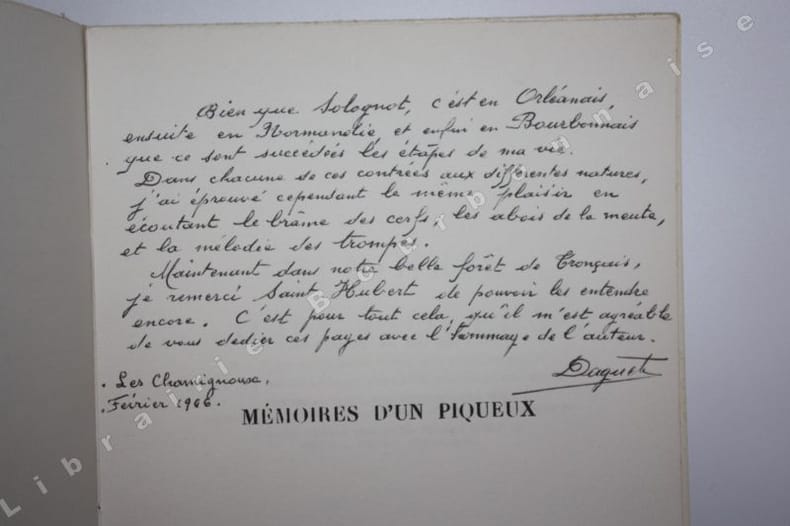 Bien que Solognot, c'est en Orléanais,
ensuite en Normandie, et enfin en Bourbonnais
que ce sont succédées les étapes de ma vie.
Dans chacune de ces contrées aux différentes natures,
j'ai éprouvé cependant le même plaisir en
écoutant le brâme des cerfs, les abois de la meute,
et la mélodie des trompes.
Maintenant dans notre belle forêt de Tronçais,
je remerci Saint Hubert de pouvoir les entendre
encore. C'est pour tout cela, qu'il m'est agréable
de vous dédier ces pages avec l'hommage de l'auteur.
Daguet
. Les Chamignoux,
. Février 1966.
MÉMOIRES D'UN PIQUEUX
Librairie Bourbonnaise